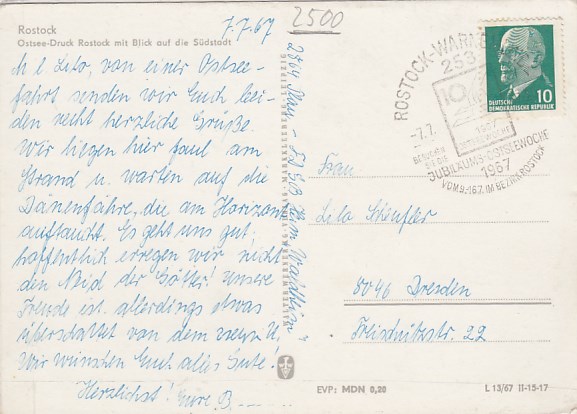 Rostock
Ostsee-Druck Rostock mit Blick auf die Südstadt
7.7.67
2500
M l Lilo, von einer Ostsee-
fahrt senden wir Euch bei-
den recht herzliche Grüße.
Wir liegen hier faul am
Strand u. warten auf die
Dänenfähre, die am Horizont
auftaucht. Es geht uns gut,
hoffentlich erregen wir nicht
den Neid der Götter! Unsere
Freude ist allerdings etwas
überschattet von dem
Wir wünschen Euch alles Gute!
Herzlichst! Eure B
ROSTOCK-WARNE
253
DEUTSCHE
DEMOKRATISCHE REPUBLIK
10
-7.7.
BESUCHEN
SIE DIE
JUBILÄUMS-OSTSEEWOCHE
1967
VOM 9.-16.7. IM BEZIRK ROSTOCK
Frau
Lilo
8046 Dresden
Freischützstr. 22
EVP: MDN 0,20
L 13/67 II-15-17